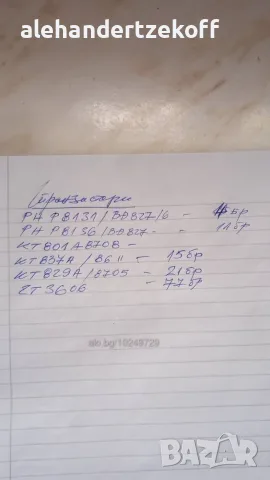 alehandertzekoff
Транзистори
PH PB131/BDB27/6 - 4бр
PH PB136/BDB27- - 14бр
KT801A8708 -
KT837A/B6" - 15бр
KT829A/8705 - 21бр
2T3606 - 77бр
alo.bg/10248729
BAZAR